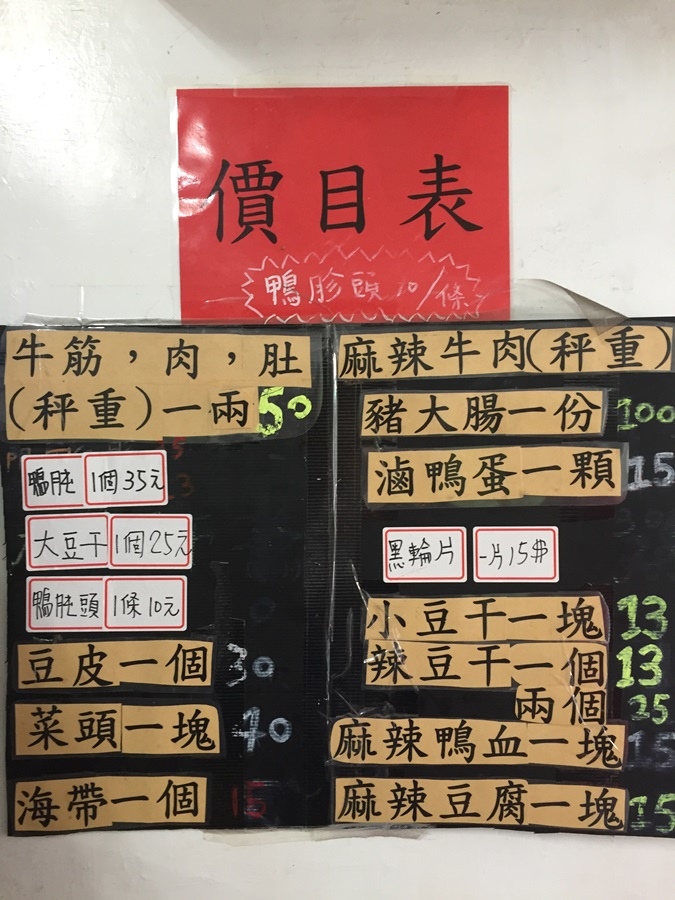 價目表
鴨胗頭10/條
牛筋，肉，肚
（秤重）一兩50
鴨肫 1個35元
大豆干 1個25元
鴨肫頭 1條10元
豆皮一個 30
菜頭一塊 40
海帶一個 15
麻辣牛肉（秤重）
豬大腸一份 100
滷鴨蛋一顆 15
黑輪片 一片15$
小豆干一塊 13
辣豆干一個 13
兩個 25
麻辣鴨血一塊 15
麻辣豆腐一塊 15